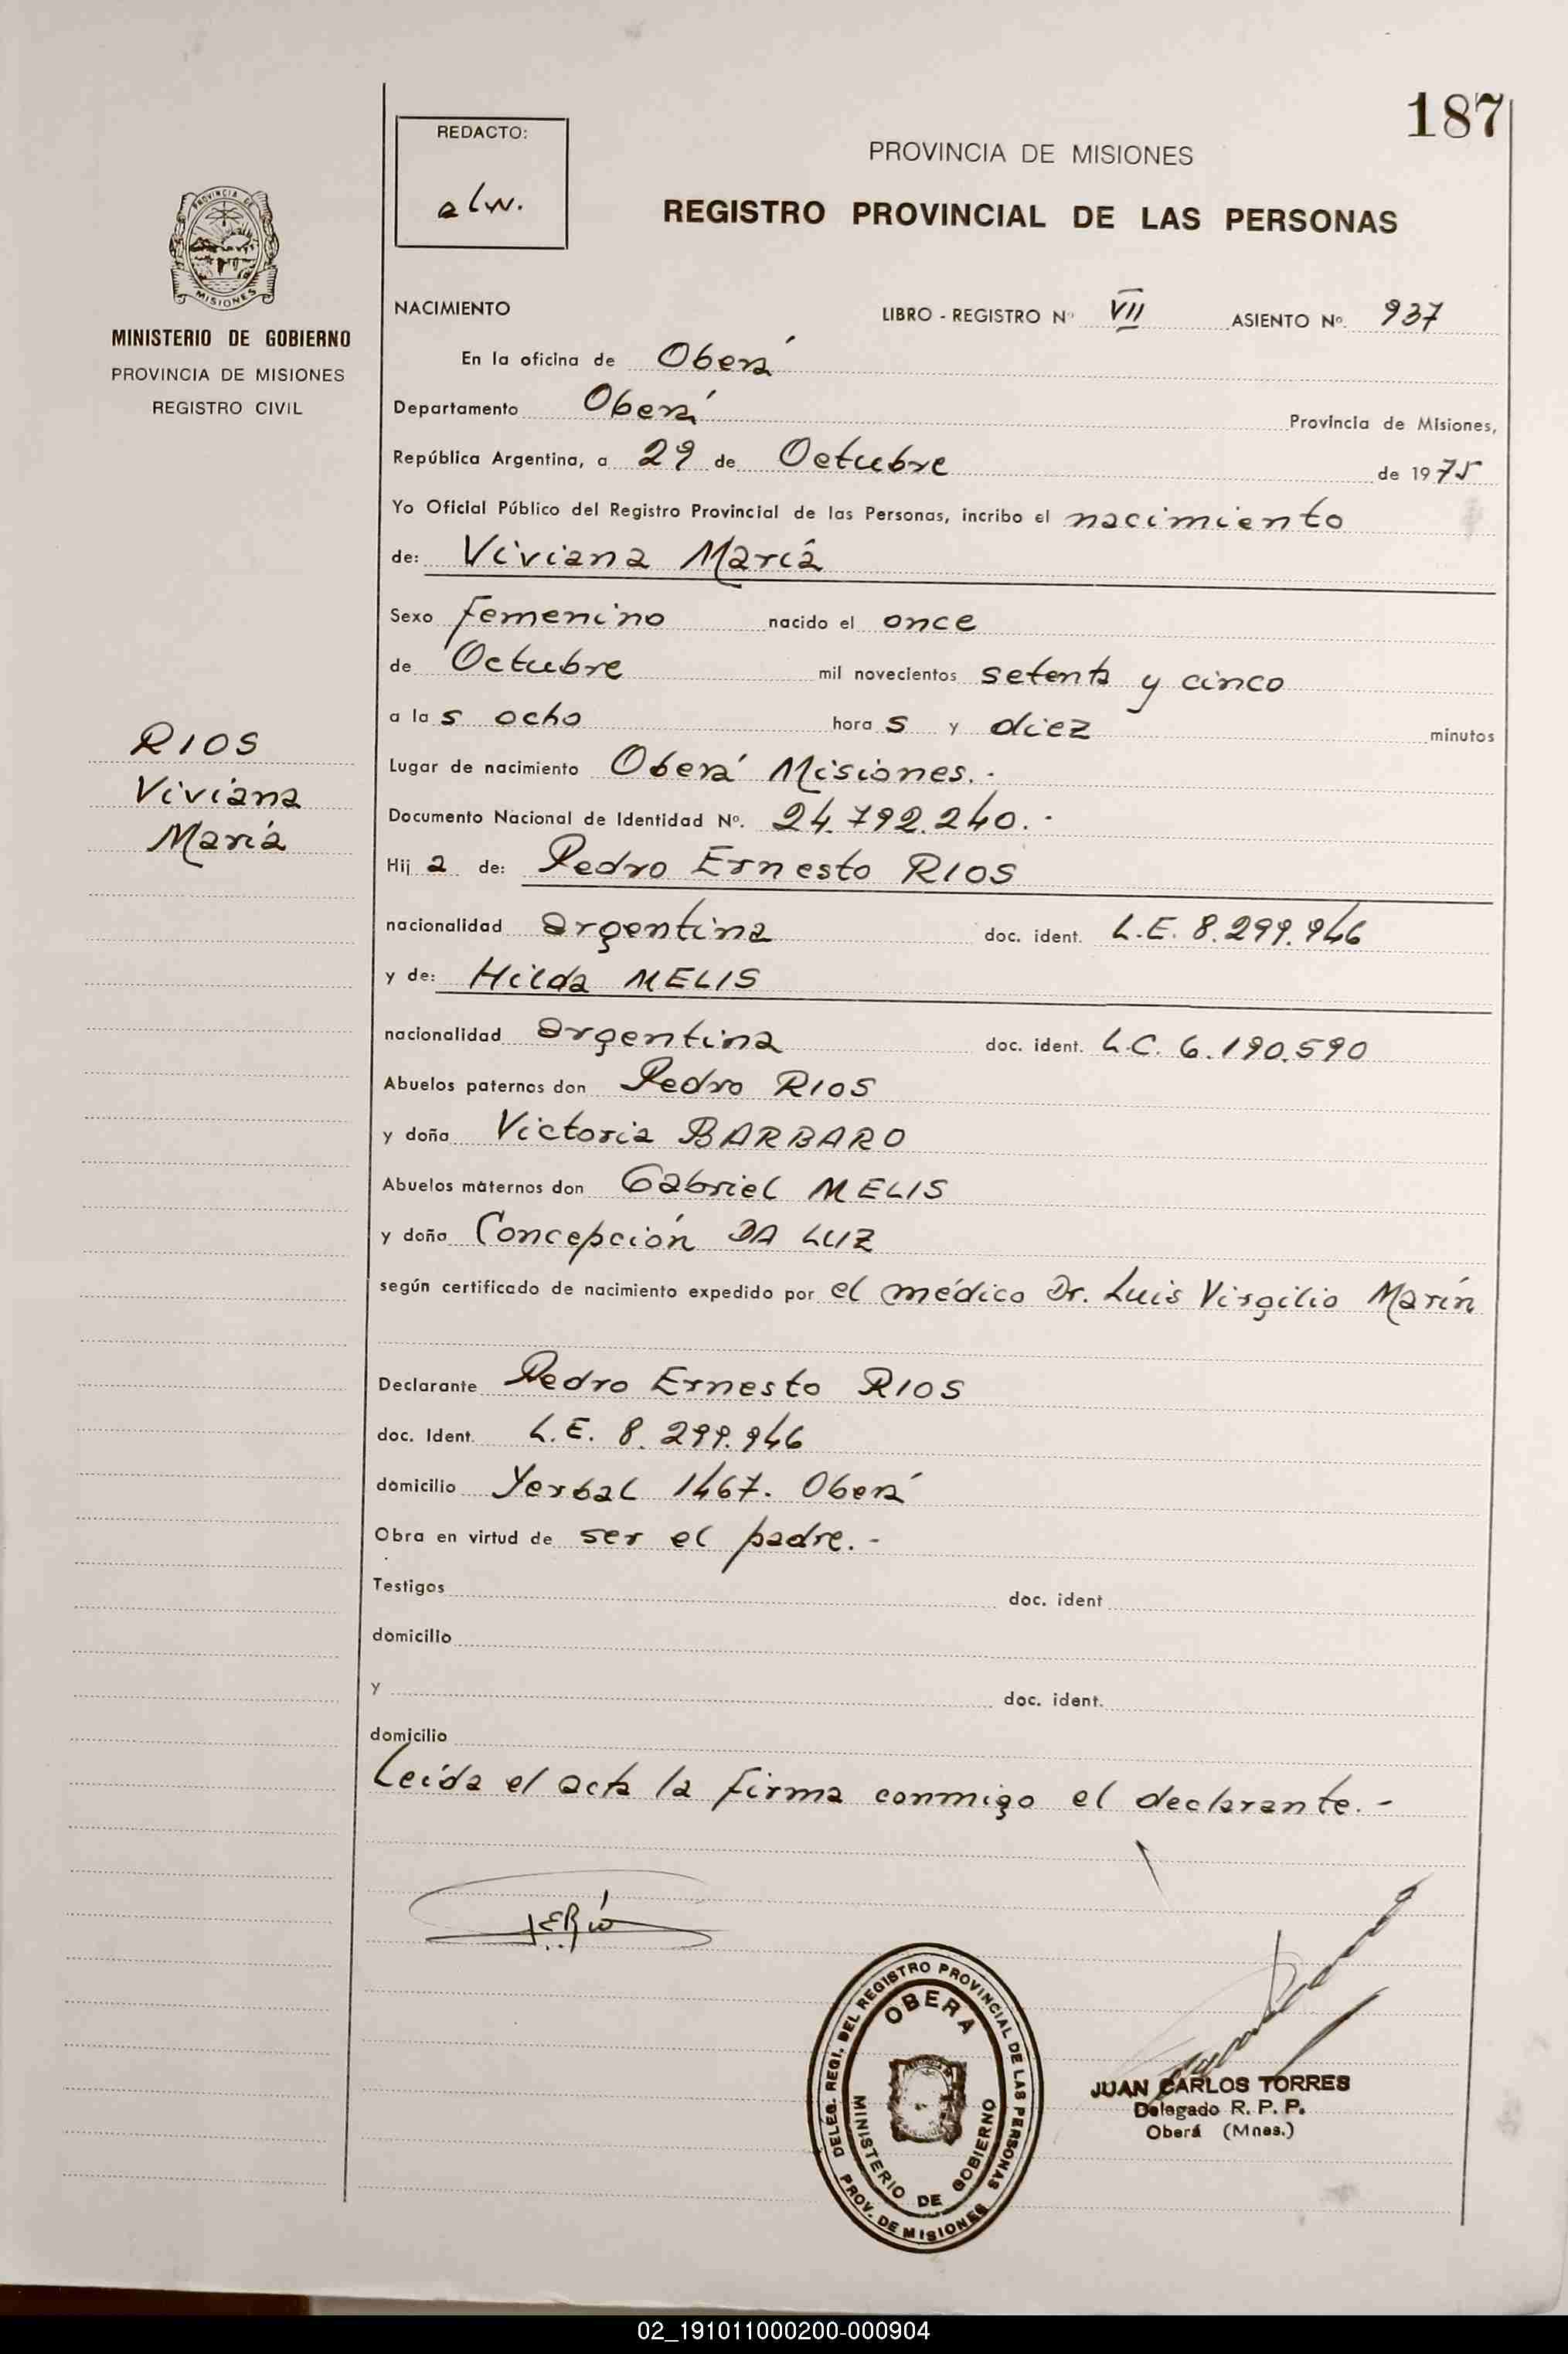 187
REDACTO:
alw.
PROVINCIA DE MISIONES
REGISTRO PROVINCIAL DE LAS PERSONAS
PROVINCIA DE
MISIONES
MINISTERIO DE GOBIERNO
PROVINCIA DE MISIONES
REGISTRO CIVIL
NACIMIENTO LIBRO - REGISTRO Nº VII ASIENTO Nº. 937
En la oficina de Oberá
Departamento Oberá Provincia de Misiones,
República Argentina, a 29 de Octubre de 1975
Yo Oficial Público del Registro Provincial de las Personas, incribo el nacimiento
de: Viviana María
Sexo femenino nacido el once
de Octubre mil novecientos setenta y cinco
a las ocho horas y diez minutos
RIOS
Viviana
María
Lugar de nacimiento Oberá Misiones.-
Documento Nacional de Identidad Nº. 24.792.240.-
Hija de: Pedro Ernesto RIOS
nacionalidad argentina doc. ident. L.E. 8.299.946
y de: Hilda MELIS
nacionalidad argentina doc. ident. L.C. 6.190.590
Abuelos paternos don Pedro RIOS
y doña Victoria BARBARO
Abuelos maternos don Gabriel MELIS
y doña Concepción DA LUZ
según certificado de nacimiento expedido por el médico Dr. Luis Virgilio Marín
Declarante Pedro Ernesto RIOS
doc. Ident. L.E. 8.299.946
domicilio Yerbal 1467. Oberá
Obra en virtud de ser el padre.-
Testigos doc. ident
domicilio
y doc. ident.
domicilio
Leída el acta la firma conmigo el declarante.-
DELEG. REGI. DEL REGISTRO PROVINCIAL DE LAS PERSONAS
OBERA
MINISTERIO DE GOBIERNO
PROV. DE MISIONES
JUAN CARLOS TORRES
Delegado R. P. P.
Oberá (Mnes.)
02_191011000200-000904